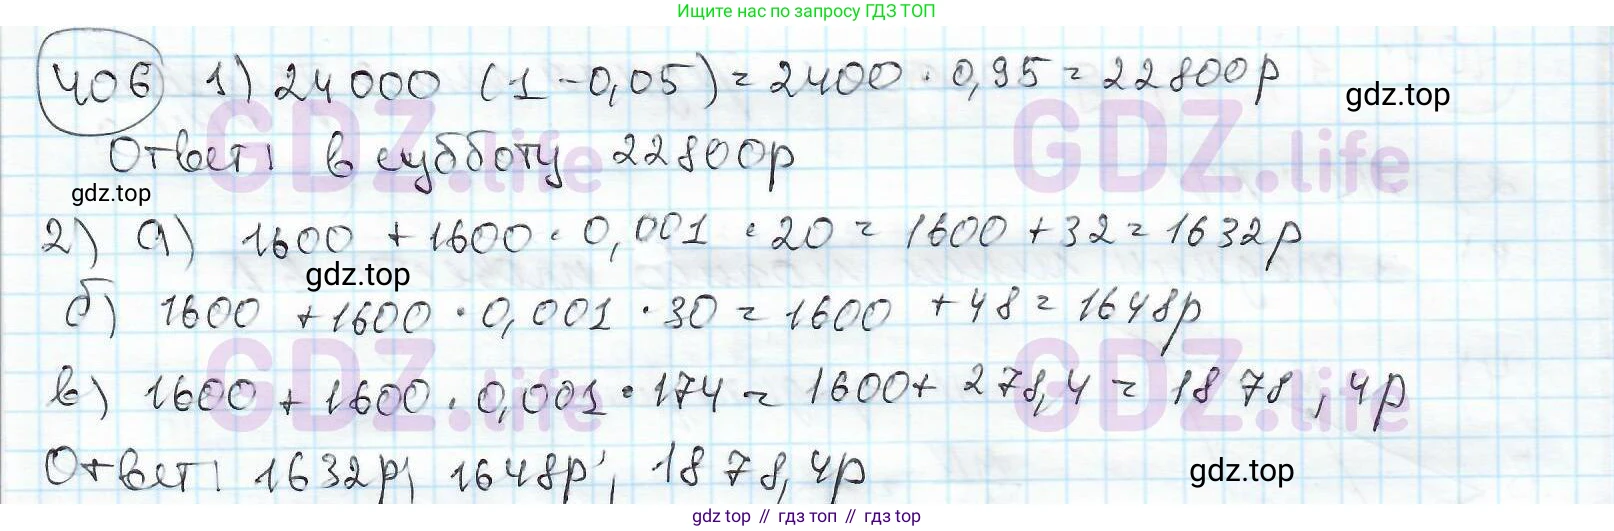 Ищите нас по запросу ГДЗ ТОП
406 1) 24000 (1-0,05) = 2400 · 0,95 = 22800р
gdz.top
Ответ: в субботу 22800р
gdz.top
2) а) 1600 + 1600 · 0,001 · 20 = 1600 + 32 = 1632р
gdz.top
б) 1600 + 1600 · 0,001 · 30 = 1600 + 48 = 1648р
в) 1600 + 1600 · 0,001 · 174 = 1600 + 278,4 = 1878,4р
Ответ: 1632р; 1648р; 1878,4р
gdz.top
GDZ.life GDZ.life
GDZ.life GDZ.life
gdz top // гдз топ // gdz top